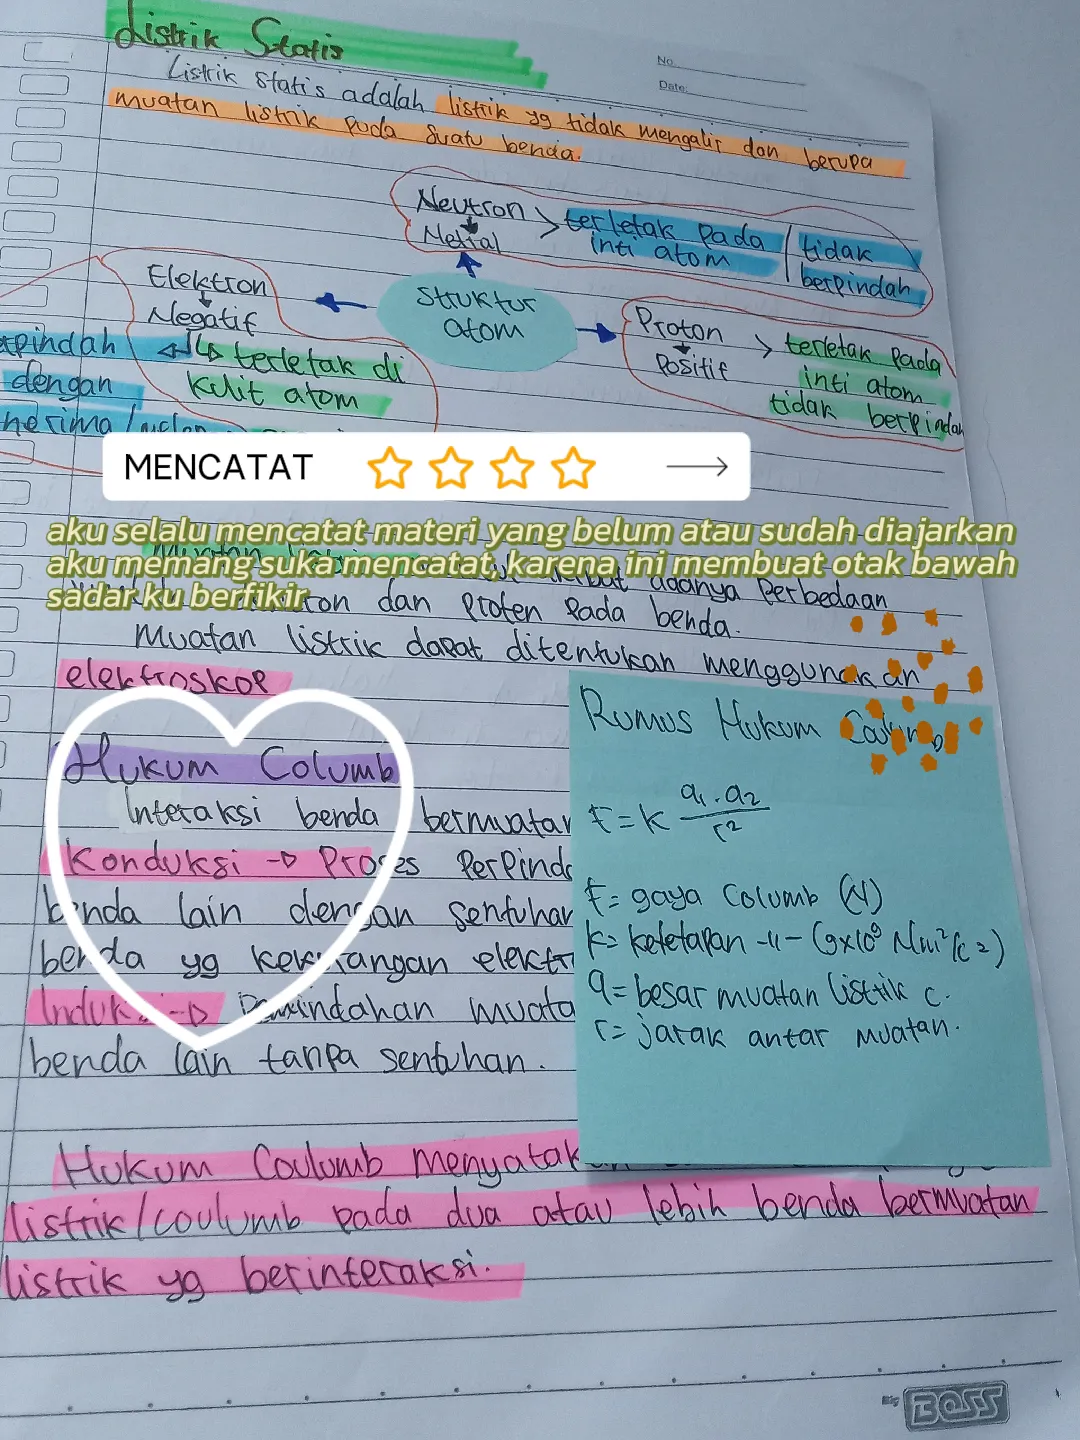 Listrik Statis
No.
Date:
Listrik statis adalah listrik yg tidak mengalir dan berupa
muatan listrik pada suatu benda.
Neutron > terletak pada / tidak
Netral inti atom berpindah
Elektron
Negatif
struktur
atom
Proton > terletak pada
Positif inti atom
tidak berpindah
terletak di
kulit atom
dengan
MENCATAT
aku selalu mencatat materi yang belum atau sudah diajarkan
aku memang suka mencatat, karena ini membuat otak bawah
sadar ku berfikir
adanya Perbedaan
dan Proten Pada benda.
Muatan listrik dapat ditentukan menggunakan
elektroskop
Hukum Columb
Interaksi benda bermuatan
Konduksi → Proses Perpinda
benda lain dengan sentuhan
benda yg kekurangan elektr
Induksi → Pemindahan muata
benda lain tanpa sentuhan.
Rumus Hukum Coulumb
F = k q1 . q2 / r2
F = gaya Columb (N)
k = ketetapan -11- (9x10⁹ Nm²/c2)
q = besar muatan listrik c.
r = jarak antar muatan.
Hukum Coulomb Menyatak
listrik/coulumb pada dua atau lebih benda bermuatan
listrik yg berinteraksi.
BOSS